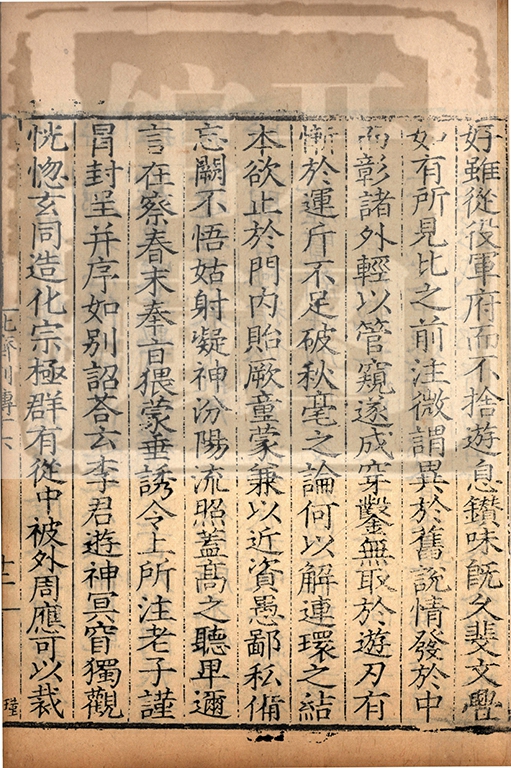 好雖從役軍府而不捨遊息鑚味旣久斐文
如有所見比之前注微謂異於舊說情發於中
而彰諸外輕以管窺遂成穿鑿無取於遊刃有
慚於運斤不足破秋毫之論何以解連環之結
本欲止於門內貽厥童蒙兼以近資愚鄙私俻
忘闕不悟姑射凝神汾陽流照蓋髙之聽卑邇
言在察春末奉旨猥蒙垂誘令上所注老子謹
冐封呈并序如别詔荅云李君遊神冥窅獨觀
恍惚玄同造化宗極群有從中被外周應可以裁
北齊列傳十六